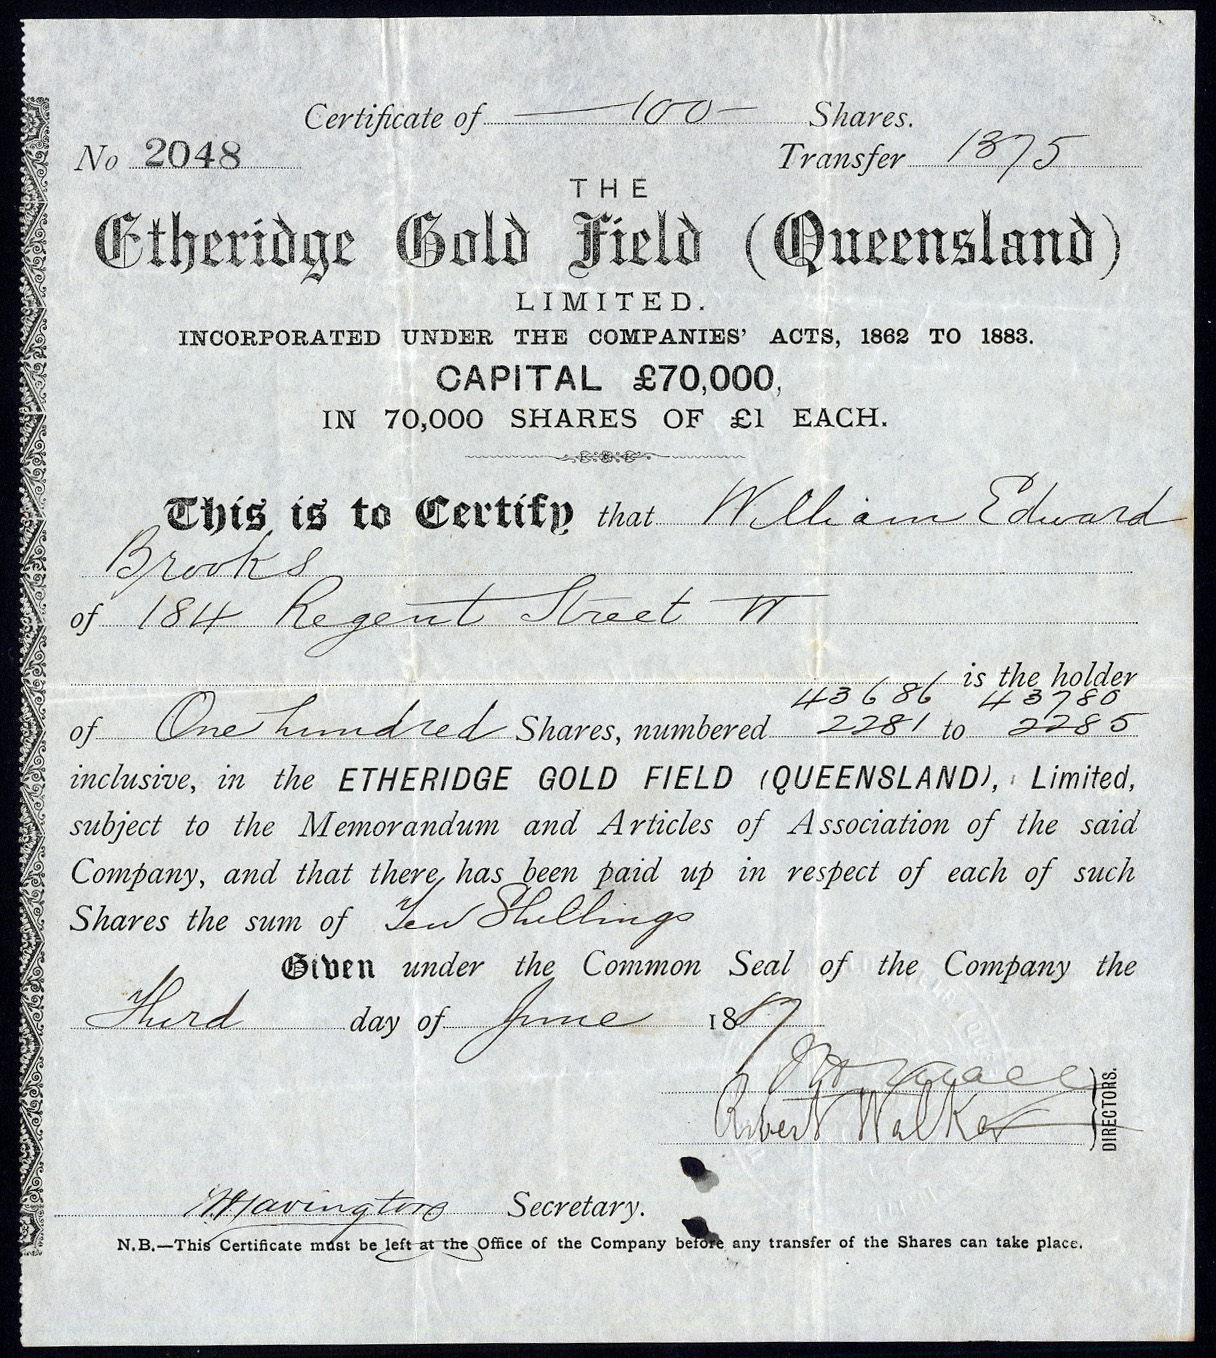 Certificate of 100 Shares.
No 2048
Transfer 1375
THE
Etheridge Gold Field (Queensland)
LIMITED.
INCORPORATED UNDER THE COMPANIES' ACTS, 1862 TO 1883.
CAPITAL £70,000,
IN 70,000 SHARES OF £1 EACH.
This is to Certify that William Edward
Brooks
of 184 Regent Street W
is the holder
43686 43780
of One hundred Shares, numbered 2281 to 2285
inclusive, in the ETHERIDGE GOLD FIELD (QUEENSLAND), Limited,
subject to the Memorandum and Articles of Association of the said
Company, and that there has been paid up in respect of each of such
Shares the sum of Ten Shillings
Given under the Common Seal of the Company the
Third day of June 1887
Robert Walker
DIRECTORS.
Secretary.
N.B.—This Certificate must be left at the Office of the Company before any transfer of the Shares can take place.